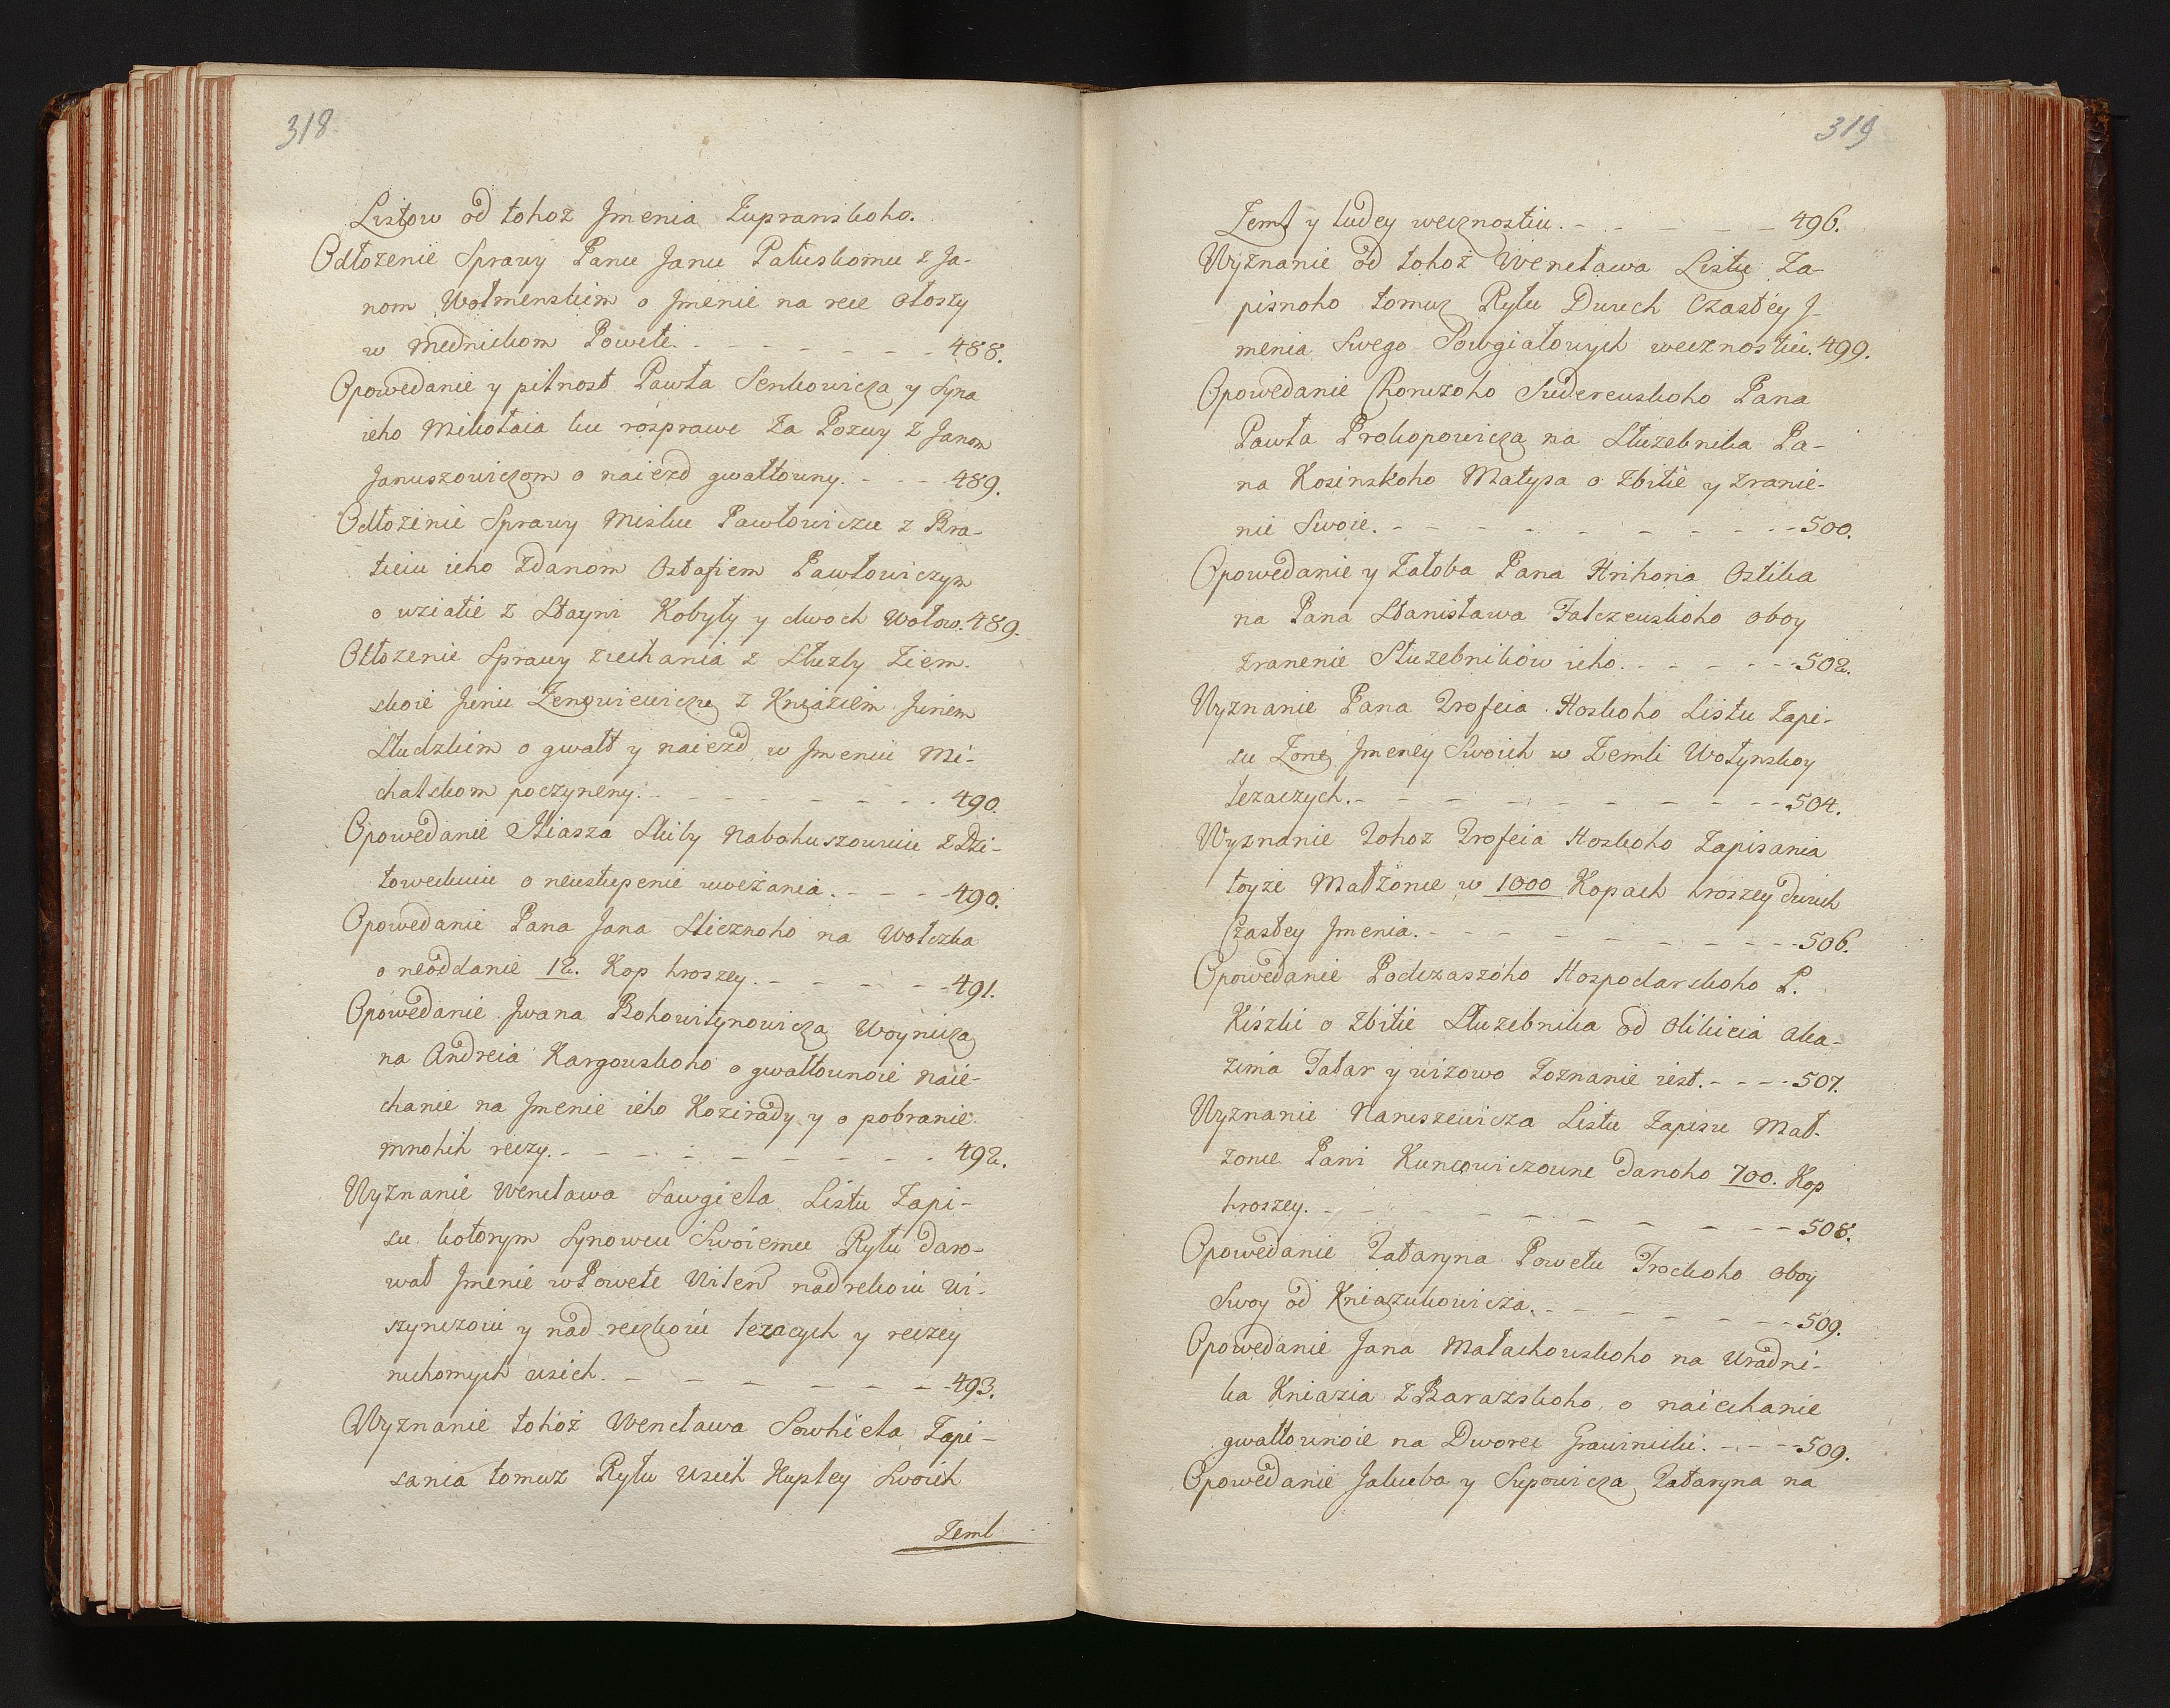 318.
Listow od tohoż Jmenia Zupranskoho.
Odłożenie Sprawy Panu Janu Pałuskomu z Ja-
nom Wołmenskim o Jmenie na rece Ołoszy
w Mednickom Powete. - - - - - - - 488.
Opowedanie y pilnost Pawła Senkowicza y Syna
ieho Mikołaia ku rosprawe za Pozwy z Janom
Januszowiczom o naiezd gwałtowny. - - - 489.
Odłożenie Sprawy Misku Pawłowiczu z Bra-
tieiu ieho Zdanom Ostafiem Pawłowiczym
o wziatie z Stayni Kobyły y dwoch Wołow. 489.
Otłożenie Sprawy ziechania z Służby Ziem-
skoie Juriu Zenowiewiczu z Kniaziem Juriem
Słudzkim o gwałt y naiezd w Jmeniu Mi-
chalskom poczyneny. - - - - - - - 490.
Opowedanie Stiasza Skiby Nabohuszowuiu z Dzi-
toweckuiu o neustupenie uweżania. - - - 490.
Opowedanie Pana Jana Sticznoho na Wołczka
o neoddanie 12. Kop hroszey. - - - - - 491.
Opowedanie Jwana Bohowitynowicza Woynicza
na Andreia Kargowskoho o gwałtownoie naie-
chanie na Jmenie ieho Kozirady y o pobranie
mnohih reczy. - - - - - - - - - 492.
Wyznanie Wencława Sawgieła Listu Zapi-
su kotorym Synowcu Swoiemu Ryłu daro-
wał Jmenie w Powete Wilen nad rekoiu Wi-
szynczoiu y nad reczkoiu leżacych y reczey
ruchomych wsich. - - - - - - - 493.
Wyznanie tohoż Wencława Sowhieła Zapi-
sania tomuz Ryłu Wsich Kupley Swoich
Zeml
319
Zeml y ludey wecznostiu. - - - - - - 496.
Wyznanie od tohoż Wencława Listu Za-
pisnoho tomuz Ryłu Dwuch Czastey J-
menia Swego Powgiałowych wecznostiu. 499.
Opowedanie Chorużoho Sudereuskoho Pana
Pawła Prokopowicza na Służebnika Pa-
na Kosinskoho Matysa o Zbitie y Zranie-
nie Swoie. - - - - - - - - - 500.
Opowedanie y Załoba Pana Hrihoria Ostika
na Pana Stanisława Falczeuskoho oboy
Zranenie Służebnikow ieho. - - - - - 502.
Wyznanie Pana Trofeia Hoskoho Listu Zapi-
su Zone Jmeney Swoich w Zemli Wołynskoy
leżaczych. - - - - - - - - - - 504.
Wyznanie Tohoz Trofeia Hoskoho Zapisania
toyże Małżonce w 1000 Kopach hroszey dwuch
Czastey Jmenia. - - - - - - - - - 506.
Opowedanie Podczaszoho Hospodarskoho P.
Kiszki o Zbitie Służebnika od Olikieia Aka-
zima Tatar y wizowo Zoznanie iest. - - - - 507.
Wyznanie Naruszewicza Listu Zapisu Mał-
żonce Pani Kuncowiczowne danoho 700. Kop
hroszey. - - - - - - - - - - 508.
Opowedanie Tataryna Powetu Trockoho oboy
Swoy od Kniazukowicza. - - - - - - 509.
Opowedanie Jana Małachowskoho na Uradni-
ka Kniazia Zbarażskoho, o naiechanie
gwałtownoie na Dworec . - - - 509.
Opowedanie Jakuba y Supowicza Tataryna na